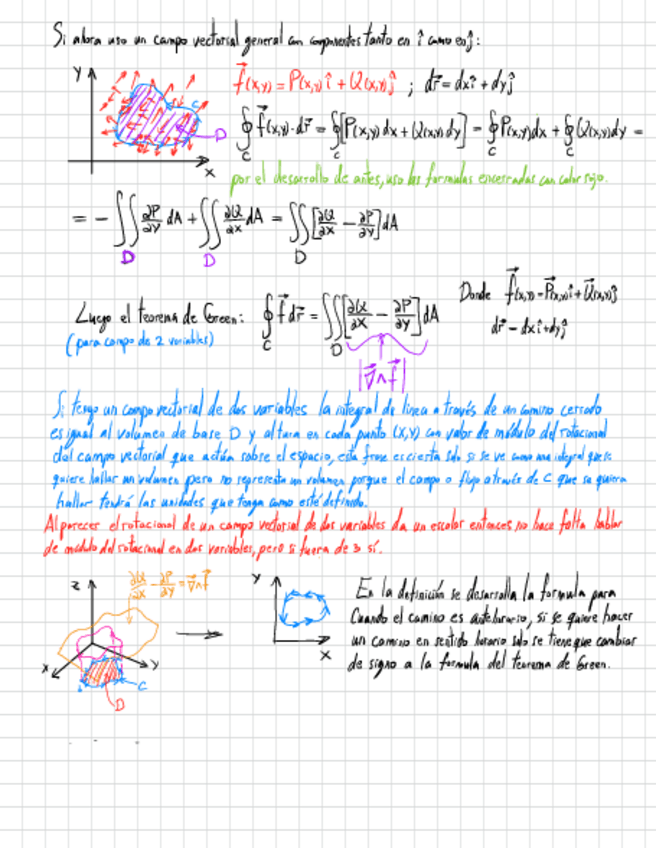 Si ahora uso un campo vectorial general con componentes tanto en î como en ĵ:
Y
f⃗(x,y) = P(x,y) î + Q(x,y) ĵ ; dr⃗ = dx î + dy ĵ
C
D
X
∮_C f⃗(x,y)·dr⃗ = ∮_C [P(x,y) dx + Q(x,y) dy] = ∮_C P(x,y) dx + ∮_C Q(x,y) dy =
por el desarrollo de antes, uso las formulas encerradas con color rojo.
= - ∬_D ∂P/∂y dA + ∬_D ∂Q/∂x dA = ∬_D [∂Q/∂x - ∂P/∂y] dA
Luego el teorema de Green: ∮_C f⃗ dr⃗ = ∬_D [∂Q/∂x - ∂P/∂y] dA
(para campo de 2 variables)
|∇⃗∧f⃗|
Donde f⃗(x,y) = P⃗(x,y) î + Q⃗(x,y) ĵ
dr⃗ = dx î + dy ĵ
Si tengo un campo vectorial de dos variables la integral de linea a través de un camino cerrado
es igual al volumen de base D y altura en cada punto (x,y) con valor de módulo del rotacional
del campo vectorial que actúa sobre el espacio, esta frase es cierta solo si se ve como una integral que se
quiere hallar un volumen pero no representa un volumen porque el campo o flujo a través de C que se quiera
hallar tendrá las unidades que tenga como esté definido.
Al parecer el rotacional de un campo vectorial de dos variables da un escalar entonces no hace falta hablar
de modulo del rotacional en dos variables, pero si fuera de 3 sí.
∂Q/∂x - ∂P/∂y = ∇⃗∧f⃗
Z
X
Y
C
D
Y
X
En la definición se desarrolla la formula para
Cuando el camino es antehorario, si se quiere hacer
un camino en sentido horario solo se tiene que cambiar
de signo a la formula del teorema de Green.